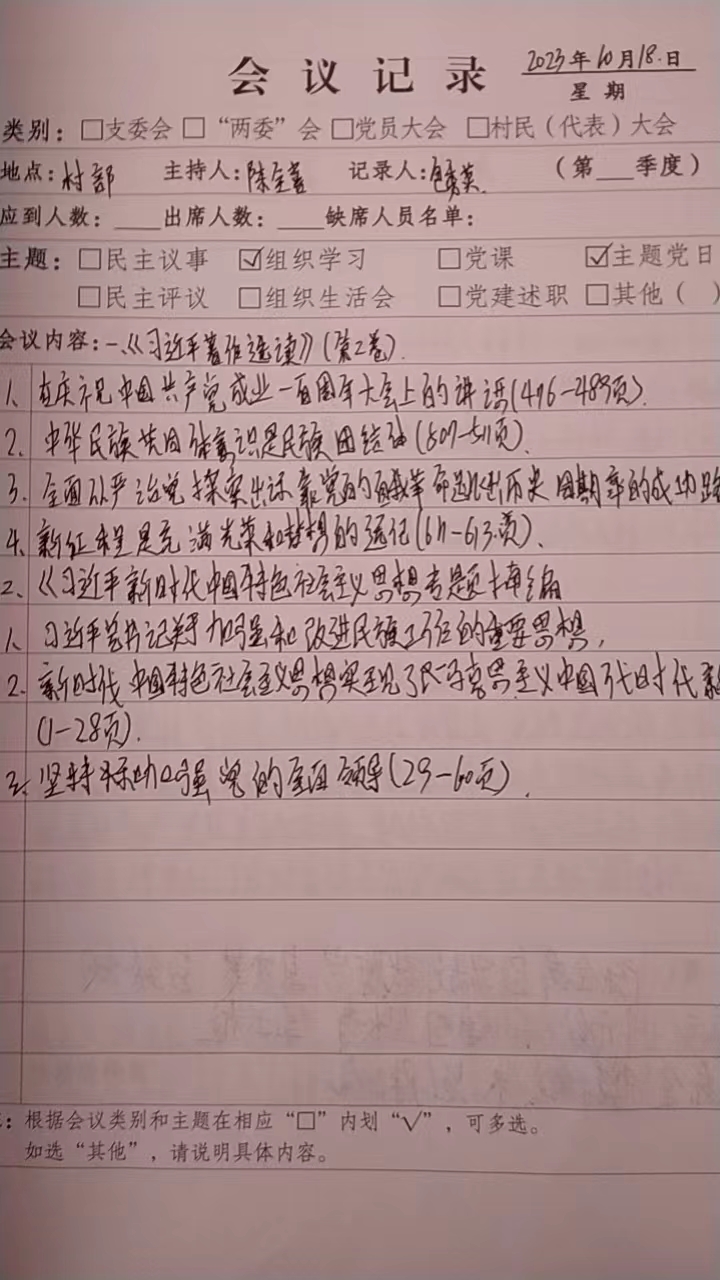 会议记录 2023年10月18日
星期
类别：□支委会 □“两委”会 □党员大会 □村民（代表）大会
地点：村部 主持人：陈 记录人： （第___季度）
应到人数：____出席人数：____缺席人员名单：
主题：□民主议事 ☑组织学习 □党课 ☑主题党日
□民主评议 □组织生活会 □党建述职 □其他（ ）
会议内容：一、《习近平著作选读》(第2卷).
1、在庆祝中国共产党成业一百周年大会上的讲话(476-489页).
2、中华民族共同体意识是民族团结(507-511页).
3、全面从严治党探索出依靠党的自我革命跳出历史周期率的成功路
4、新征程是充满光荣和梦想的远征(611-613页)、
2、《习近平新时代中国特色社会主义思想专题摘编
1、习近平总书记关于加强和改进民族工作的重要思想，
2、新时代中国特色社会主义思想实现了马克思主义中国代时代新
(1-28页).
3、坚持和加强党的全面领导(29-60页).
：根据会议类别和主题在相应“□”内划“√”，可多选。
如选“其他”，请说明具体内容。